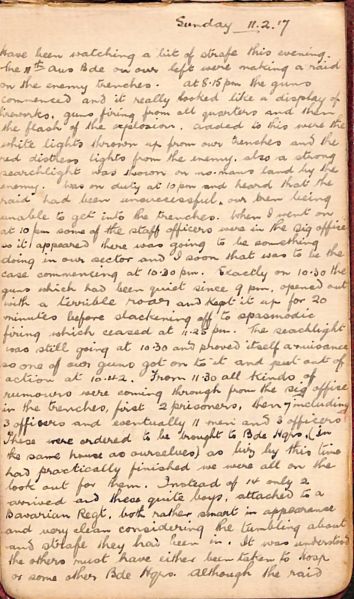 Sunday 11.2.17
Have been watching a bit of strafe this evening.
The 11th Aus Bde on our left were making a raid
on the enemy trenches. At 8.15pm the guns
commenced and it really looked like a display of
fireworks, guns firing from all quarters and then
the flash of the explosion. Added to this were the
white lights thrown up from our trenches and the
red distress lights from the enemy, also a strong
searchlight was thrown on no-mans land by the
enemy. Was on duty at 10pm and heard that the
raid had been unsuccessful, our men being
unable to get into the trenches. When I went on
at 10 pm some of the staff officers were in the sig office
so it appeared there was going to be something
doing in our sector and I soon that was to be the
case commencing at 10.30pm. Exactly on 10.30 the
guns which had been quiet since 9 pm, opened out
with a terrible roar and kept it up for 20
minutes before slackening off to spasmodic
firing which ceased at 11.25 pm. The seachlight
was still going at 10.30 and proved itself a nuisance
so one of our guns got on to it and put out of
action at 10.42. From 11.30 all kinds of
rumours were coming through from the sig office
in the trenches, first 2 prisoners, then 7 including
3 officers and eventually 11 men and 3 officers.
These were ordered to be brought to Bde Hqrs, (In
the same house as ourselves) as by this time
had practically finished we were all on the
look out for them. Instead of 14 only 2
arrived and these quite boys, attached to a
Bavarian Regt, both rather smart in appearance
and very clean considering the tumbling about
and strafe they had been in. It was understood
the others must have either been taken to Hosp
or some other Bde Hqrs. Although the raid